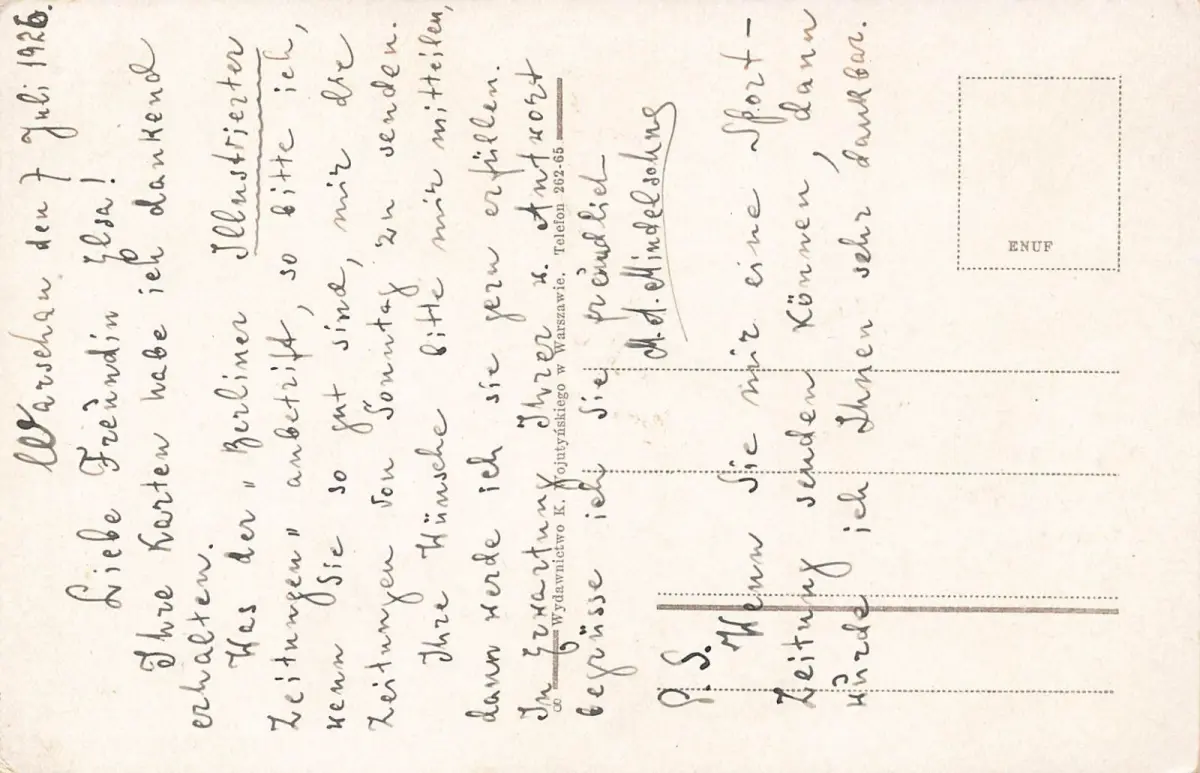 Warschau den 7 Juli 1926.
Liebe Freundin Elsa!
Ihre Karten habe ich dankend
erhalten.
Was der „Berliner Illustrierter
Zeitungen" anbetrift, so bitte ich,
wenn Sie so gut sind, mir die
Zeitungen von Sonntag zu senden.
Ihre Wünsche bitte mir mitteilen,
dann werde ich sie gern erfüllen.
In Erwartung Ihrer w. Antwort
begrüsse ich Sie freundlich
M. A. Mindelsohne
P. S.
Wenn Sie mir eine Sport-
Zeitung senden können, dann
würde ich Ihnen sehr dankbar.
8 Wydawnictwo K. Wojutyńskiego w Warszawie. Telefon 262-65
ENUF